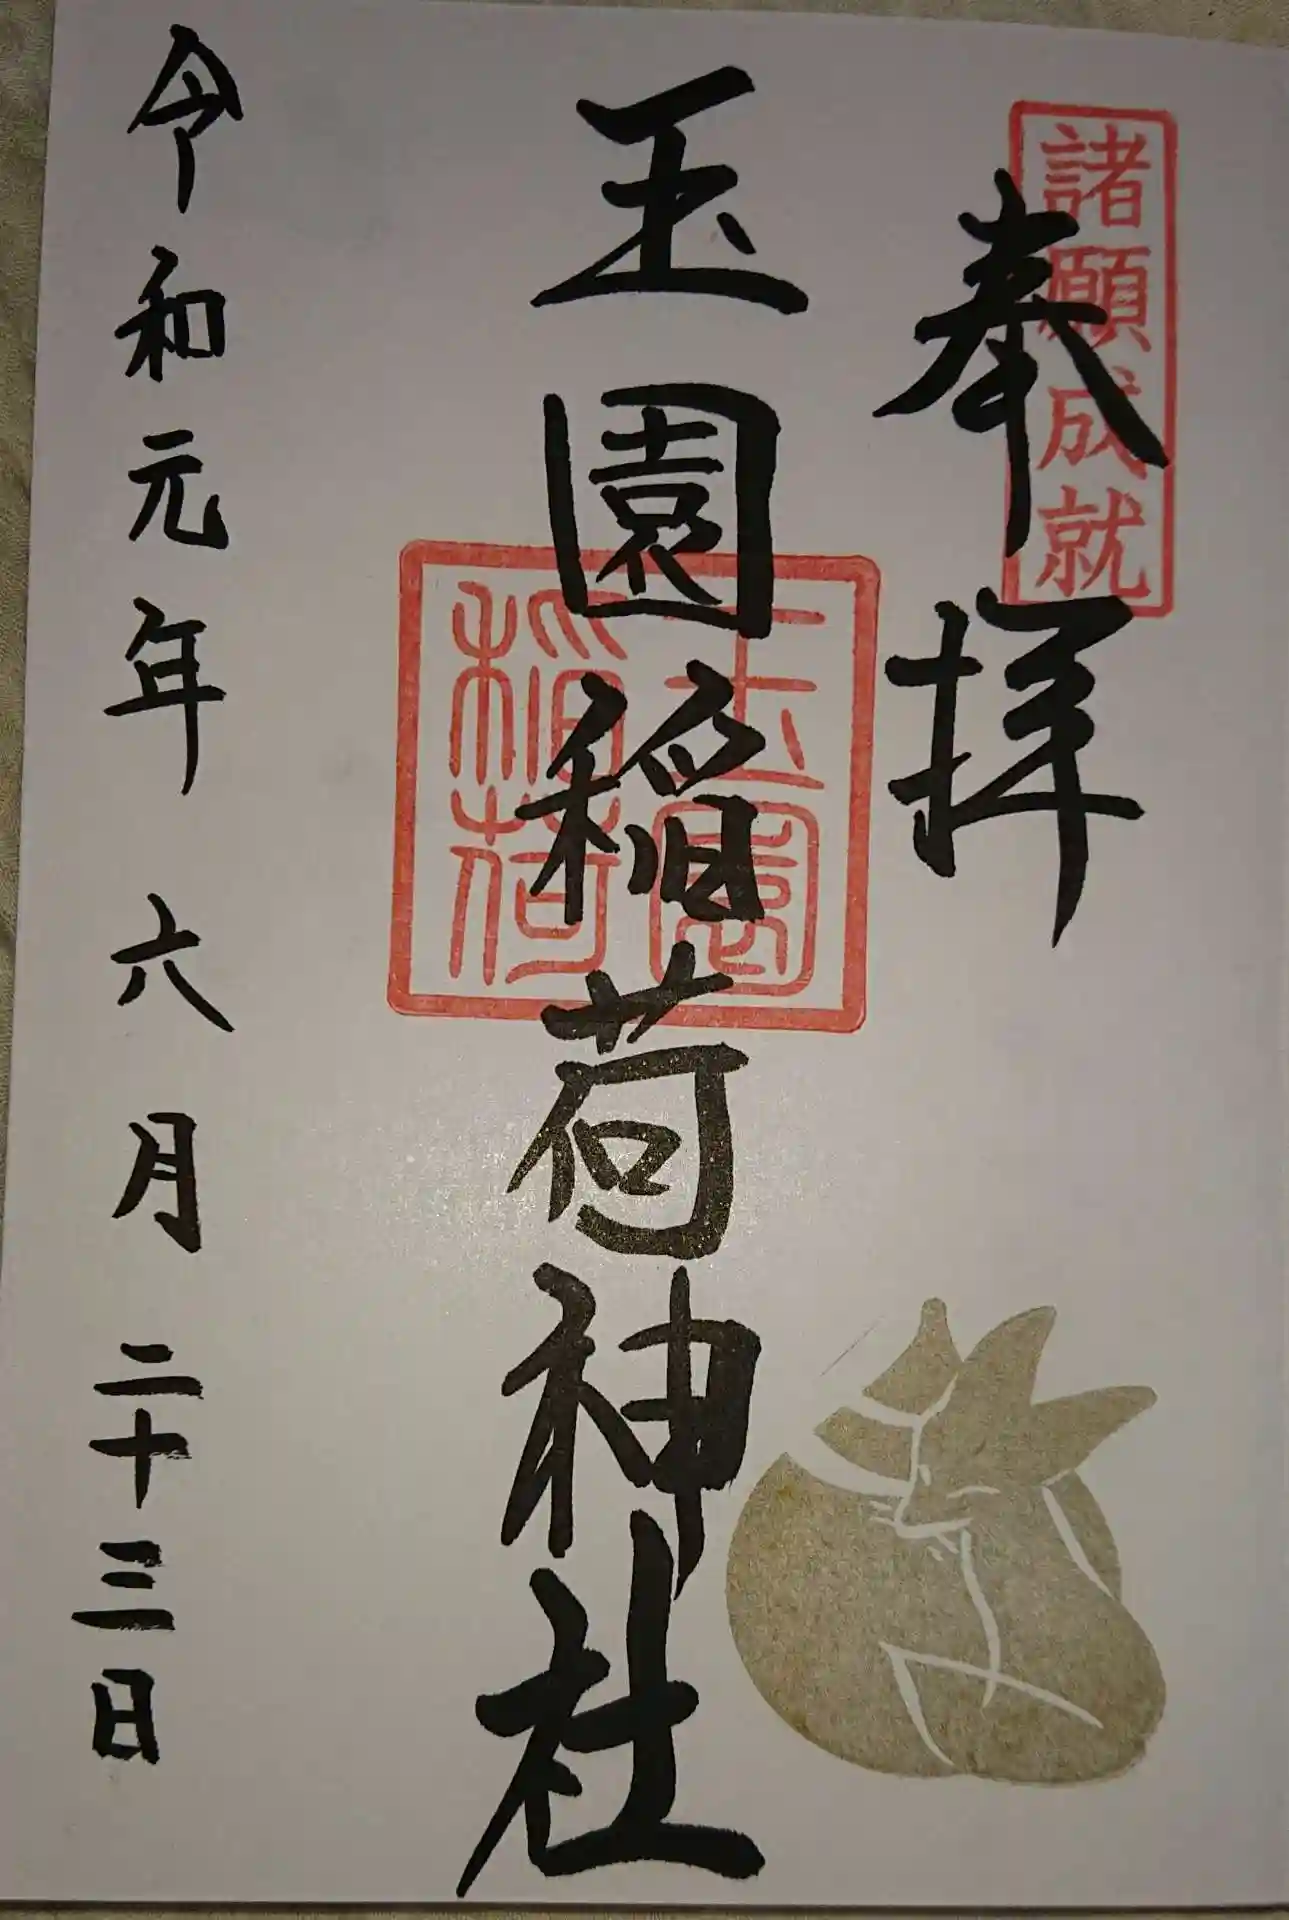 諸願成就
奉拝
玉園稲荷神社
玉園稲荷
令和元年六月二十三日